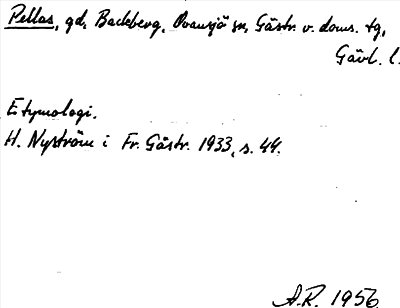 Pellas, gd, Backberg, Ovansjö sn, Gästr. v. doms. tg,
Gävl. l.
Etymologi.
H. Nyström i Fr. Gästr. 1933, s. 44.
A.R. 1956